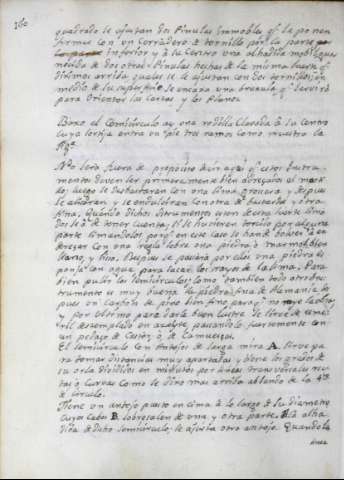 160
quadrado se ajustan dos Pinulas inmobles q.e se ponen
firmes con un corredero de tornillo por la parte
inferior y a su Centro una alhadida mobible que
nesida de dos otras Pinulas hechas de la misma suerte q.e
disimos arriba quales se le ajustan con dos tornillos en
medio de su superficie se encara una bruxula q.e servirá
para Orientar las Cartas y los Planos
Baxo el Comicirculo ay una rodilla clavada à su Centro
cuya sortija entra un pie tres ramos como muestra la
fig.a
No sera fuera de proposito dezir aqui q.e estos Instru-
mentos deven ser primeramente bien adreçados al marti-
llo; luego se desbastaran con una lima grosera y despues
se alisaran y se endulsaran con otra de bastarda y otra
fina. Quando dichos Instrumentos esten de esta suerte lima
dos se à de tener cuenta si se hicieron torcido por alguna
parte limandolos, porq.e en este caso se han de bolver a en-
dereçar con una regla sobre una piedra ò marmol bien
llano, y liso. Despues se pasará por ellos una piedra es-
ponja con agua para sacar los rayos de la lima. Para
bien pulir los semicirculos, como tambien todo otro Ins-
trumento es muy buena la piedra fina de Alemania, des-
pues un Carbon de pino bien fino para q.e no raye la obra,
y por ultimo para darle buen lustre se sirve de sme-
ril destemplado en azeyte pasandolo suavemente con
un pedaço de Castor, ò de Camuesça.
El semicirculo con Antojos de larga mira A. sirve pa
ra tomar distancias muy apartadas y tiene los grados de
su orla divididos en minutos por lineas transversales rec-
tas ò Curvas Como se dirà mas arriba ablando de la 4.ta
de circulo.
Tiene un antojo puesto en sima à lo largo de su diametro
cuyos Cabos B. sobresalen de una y otra parte. A la alha
dida de dicho Semicirculo, se ajusta otro antojo. Quando la
linea